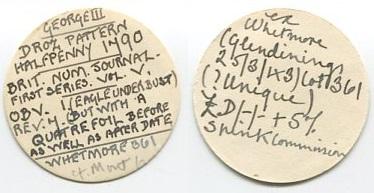 GEORGE III
DROZ PATTERN
HALFPENNY 1790
BRIT. NUM. JOURNAL.
FIRST SERIES. VOL. V.
OBV. 1 (EAGLE UNDER BUST)
REV. 4. BUT WITH A
QUATREFOIL BEFORE
AS WELL AS AFTER DATE
WHETMORE 361
ex
Whetmore
(Glendinings
25/3/43) Lot 361
(? Unique)
£D/-/- + 5%
Spink Commission